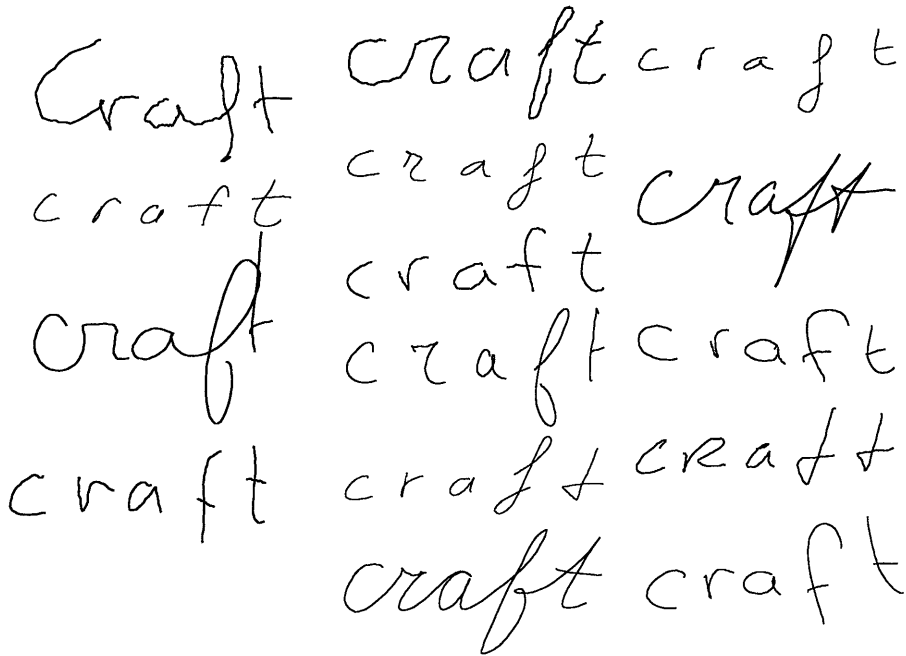 Craft
craft
craft
craft
craft
craft
craft
craft
craft
craft
craft
craft
craft
craft
craft